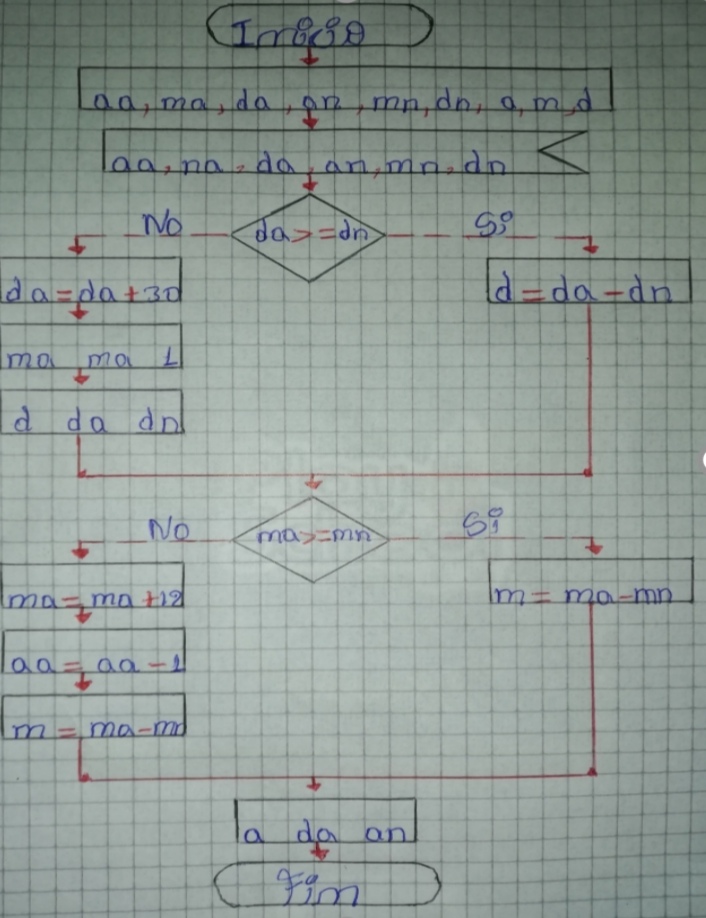 Inicio
aa, ma, da, an, mn, dn, a, m, d
aa, na, da, an, mn, dn
No
da>=dn
Si
da=da+30
d=da-dn
ma ma 1
d da dn
No
ma>=mn
Si
ma=ma+12
m=ma-mn
aa=aa-1
m=ma-mn
a da an
Fin